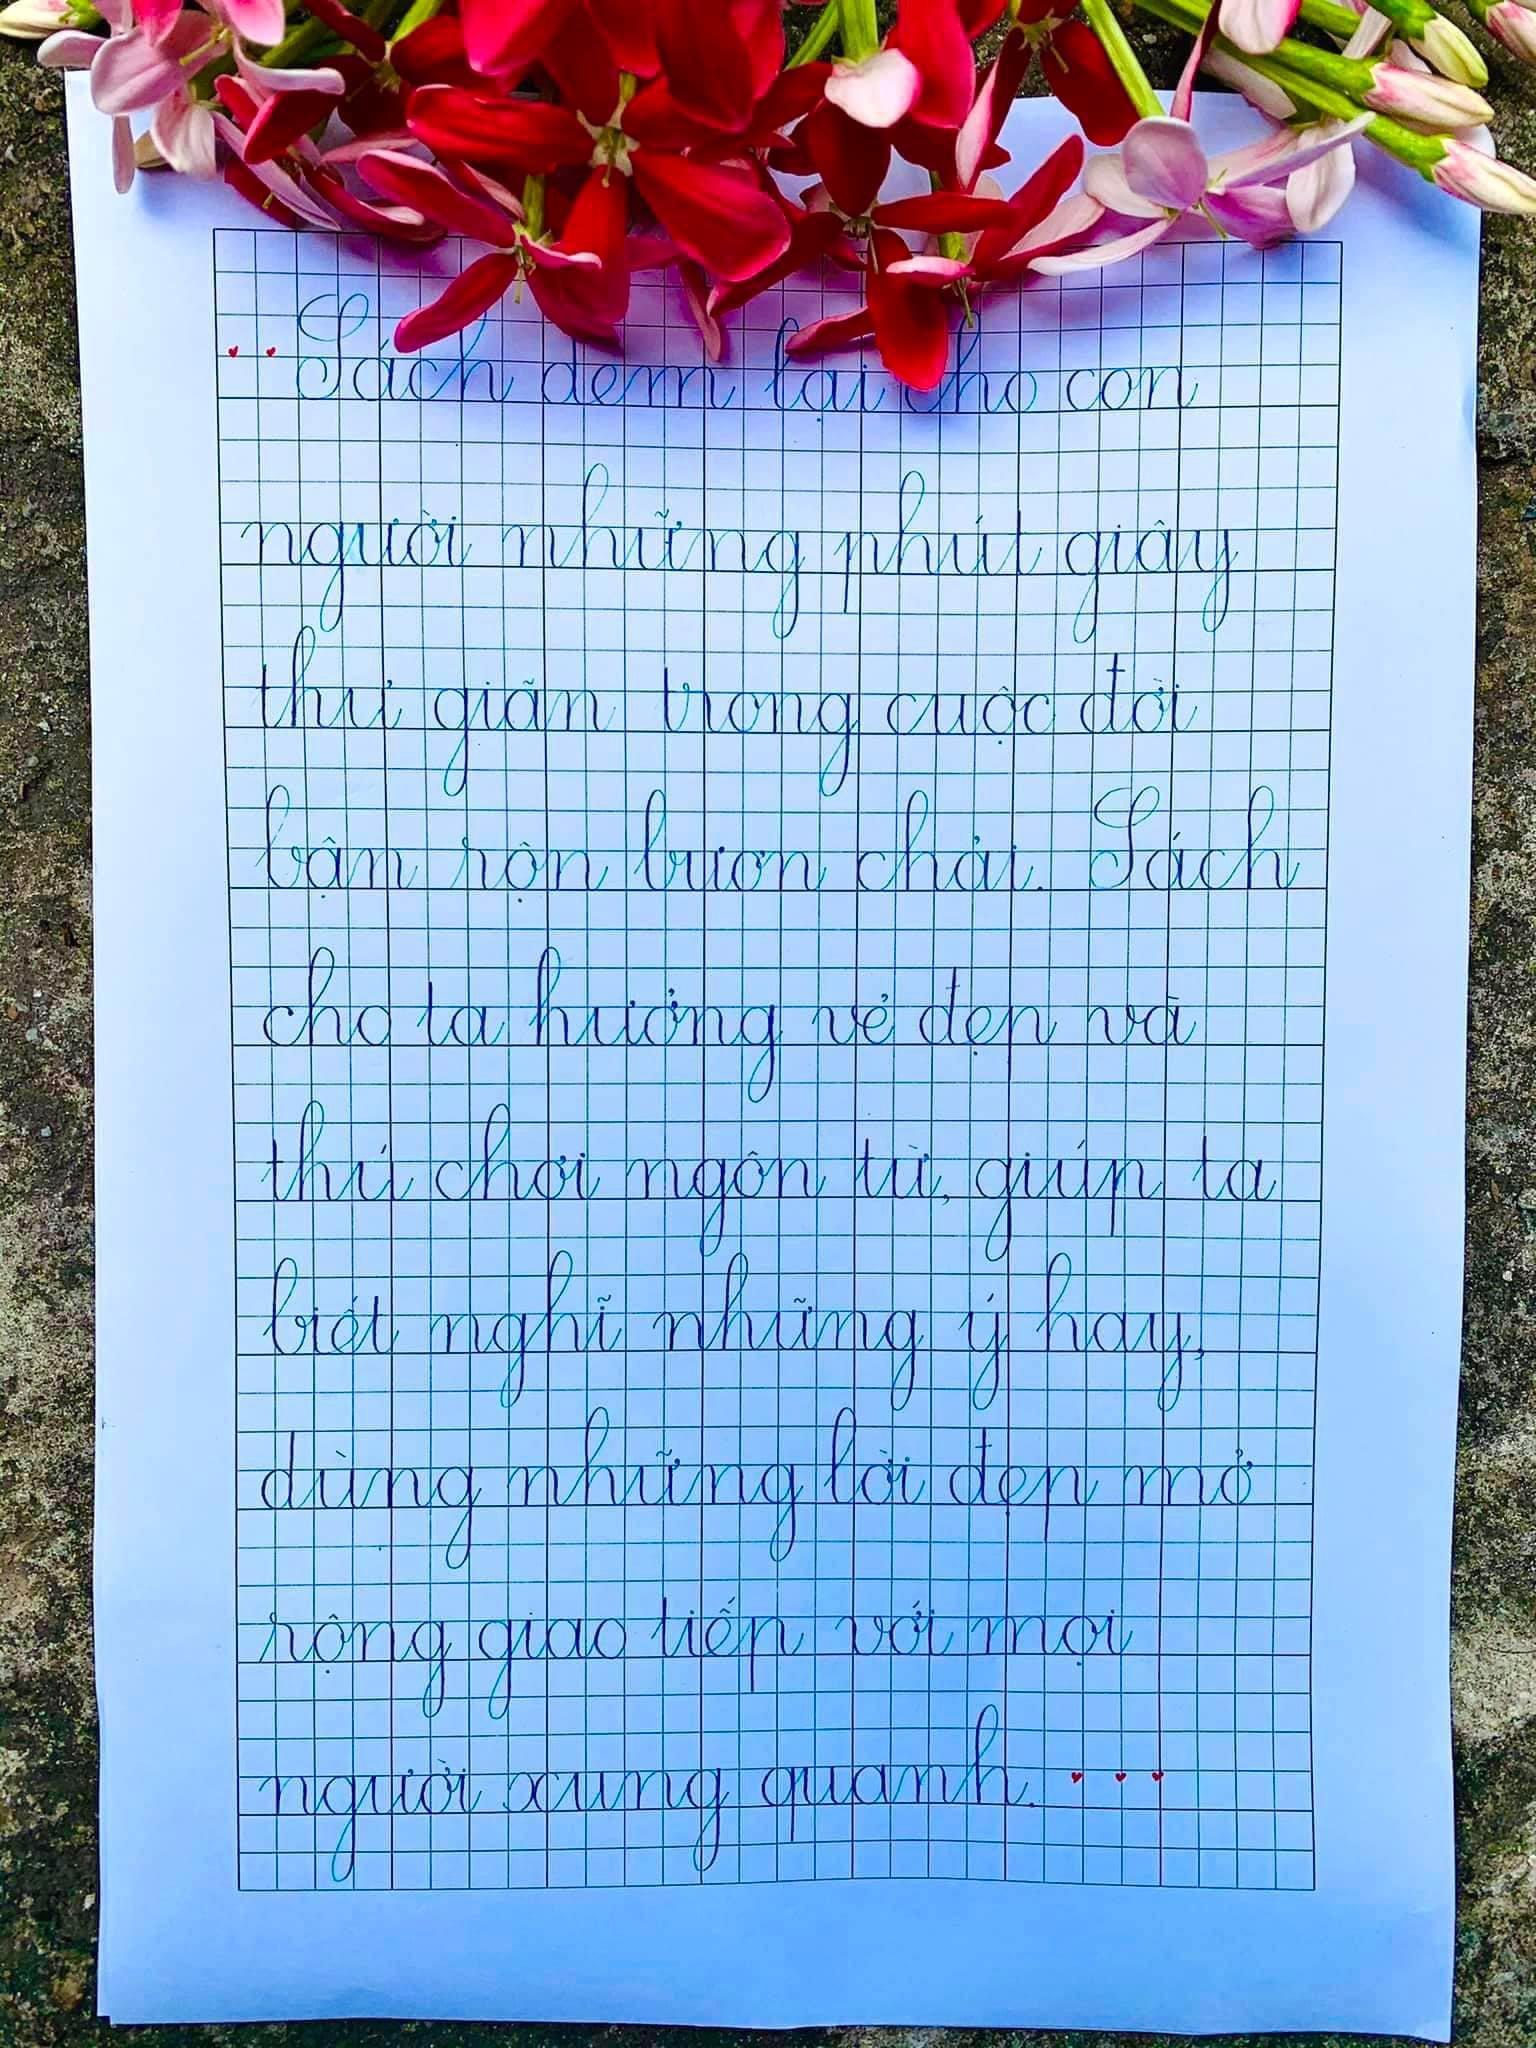 Sách đem lại cho con
người những phút giây
thư giãn trong cuộc đời
bận rộn bươn chải. Sách
cho ta hưởng vẻ đẹp và
thú chơi ngôn từ, giúp ta
biết nghĩ những ý hay,
dùng những lời đẹp mở
rộng giao tiếp với mọi
người xung quanh.